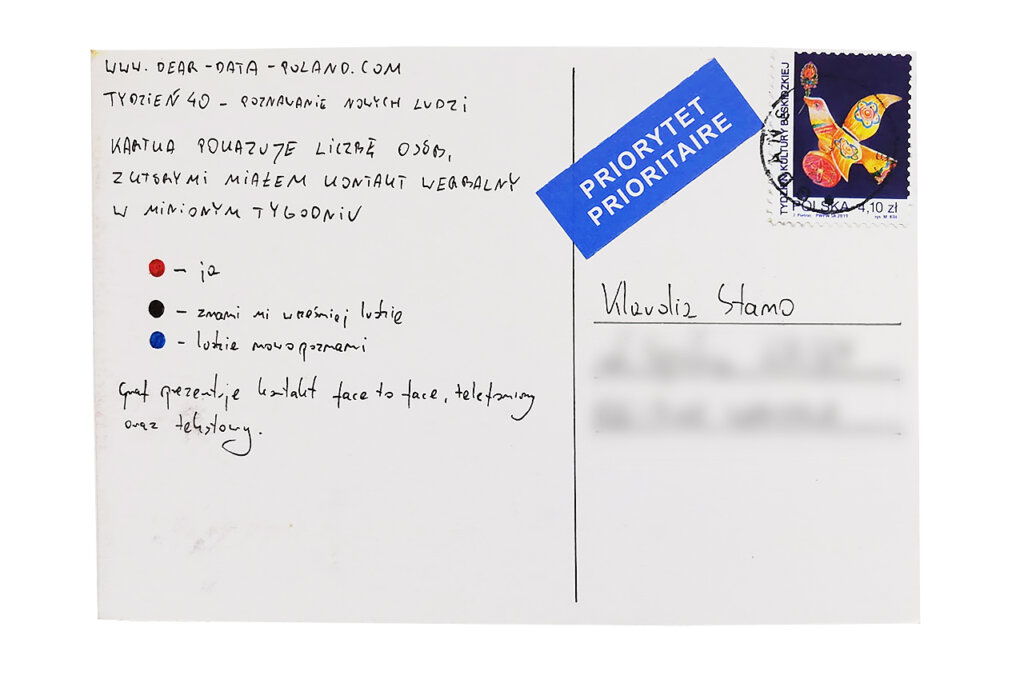 WWW.DEAR-DATA-POLAND.COM
TYDZIEŃ 40 - POZNAWANIE NOWYCH LUDZI
KARTKA POKAZUJE LICZBĘ OSÓB,
Z KTÓRYMI MIAŁEM KONTAKT WERBALNY
W MINIONYM TYGODNIU
- ja
- znami mi wcześniej ludzie
- ludzie nowopoznami
Graf prezentuje kontakt face to face, telefoniczny
oraz tekstowy.
PRIORYTET
PRIORITAIRE
TYDZIEŃ KULTURY BESKIDZKIEJ
POLSKA 4,10 zł
Klaudia Stamo